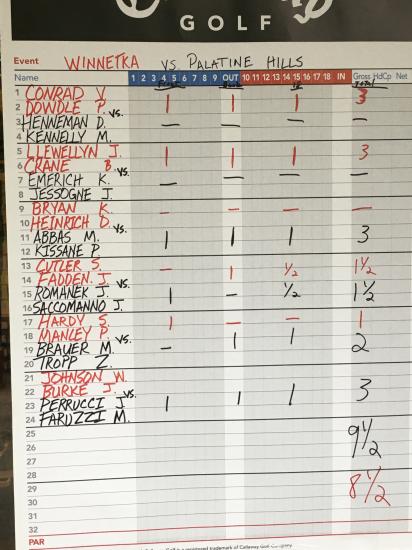 GOLF
Event WINNETKA VS. PALATINE HILLS
Name 1 2 3 4 5 6 7 8 9 OUT 10 11 12 13 14 15 16 17 18 IN Gross HdCp Net
1 CONRAD V.
2 DOWDLE P. VS. 1 1 1 3
3 HENNEMAN D. — — — —
4 KENNELLY M.
5 LLEWELLYN J. 1 1 1 3
6 CRANE B. VS.
7 EMERICH K. — — — —
8 JESSOGNE J.
9 BRYAN K. — — — —
10 HEINRICH D. VS.
11 ABBAS M. 1 1 1 3
12 KISSANE P.
13 CUTLER S. — 1 1/2 1 1/2
14 FADDEN. J. VS.
15 ROMANEK J. 1 — 1/2 1 1/2
16 SACCOMANNO J.
17 HARDY S. 1 — — 1
18 MANLEY P. VS.
19 BRAUER M. — 1 1 2
20 TROPP Z.
21 JOHNSON W.
22 BURKE J. VS.
23 PERRUCCI J. 1 1 1 3
24 FARUZZI M.
25
26 9 1/2
27
28
29 8 1/2
30
31
32
PAR